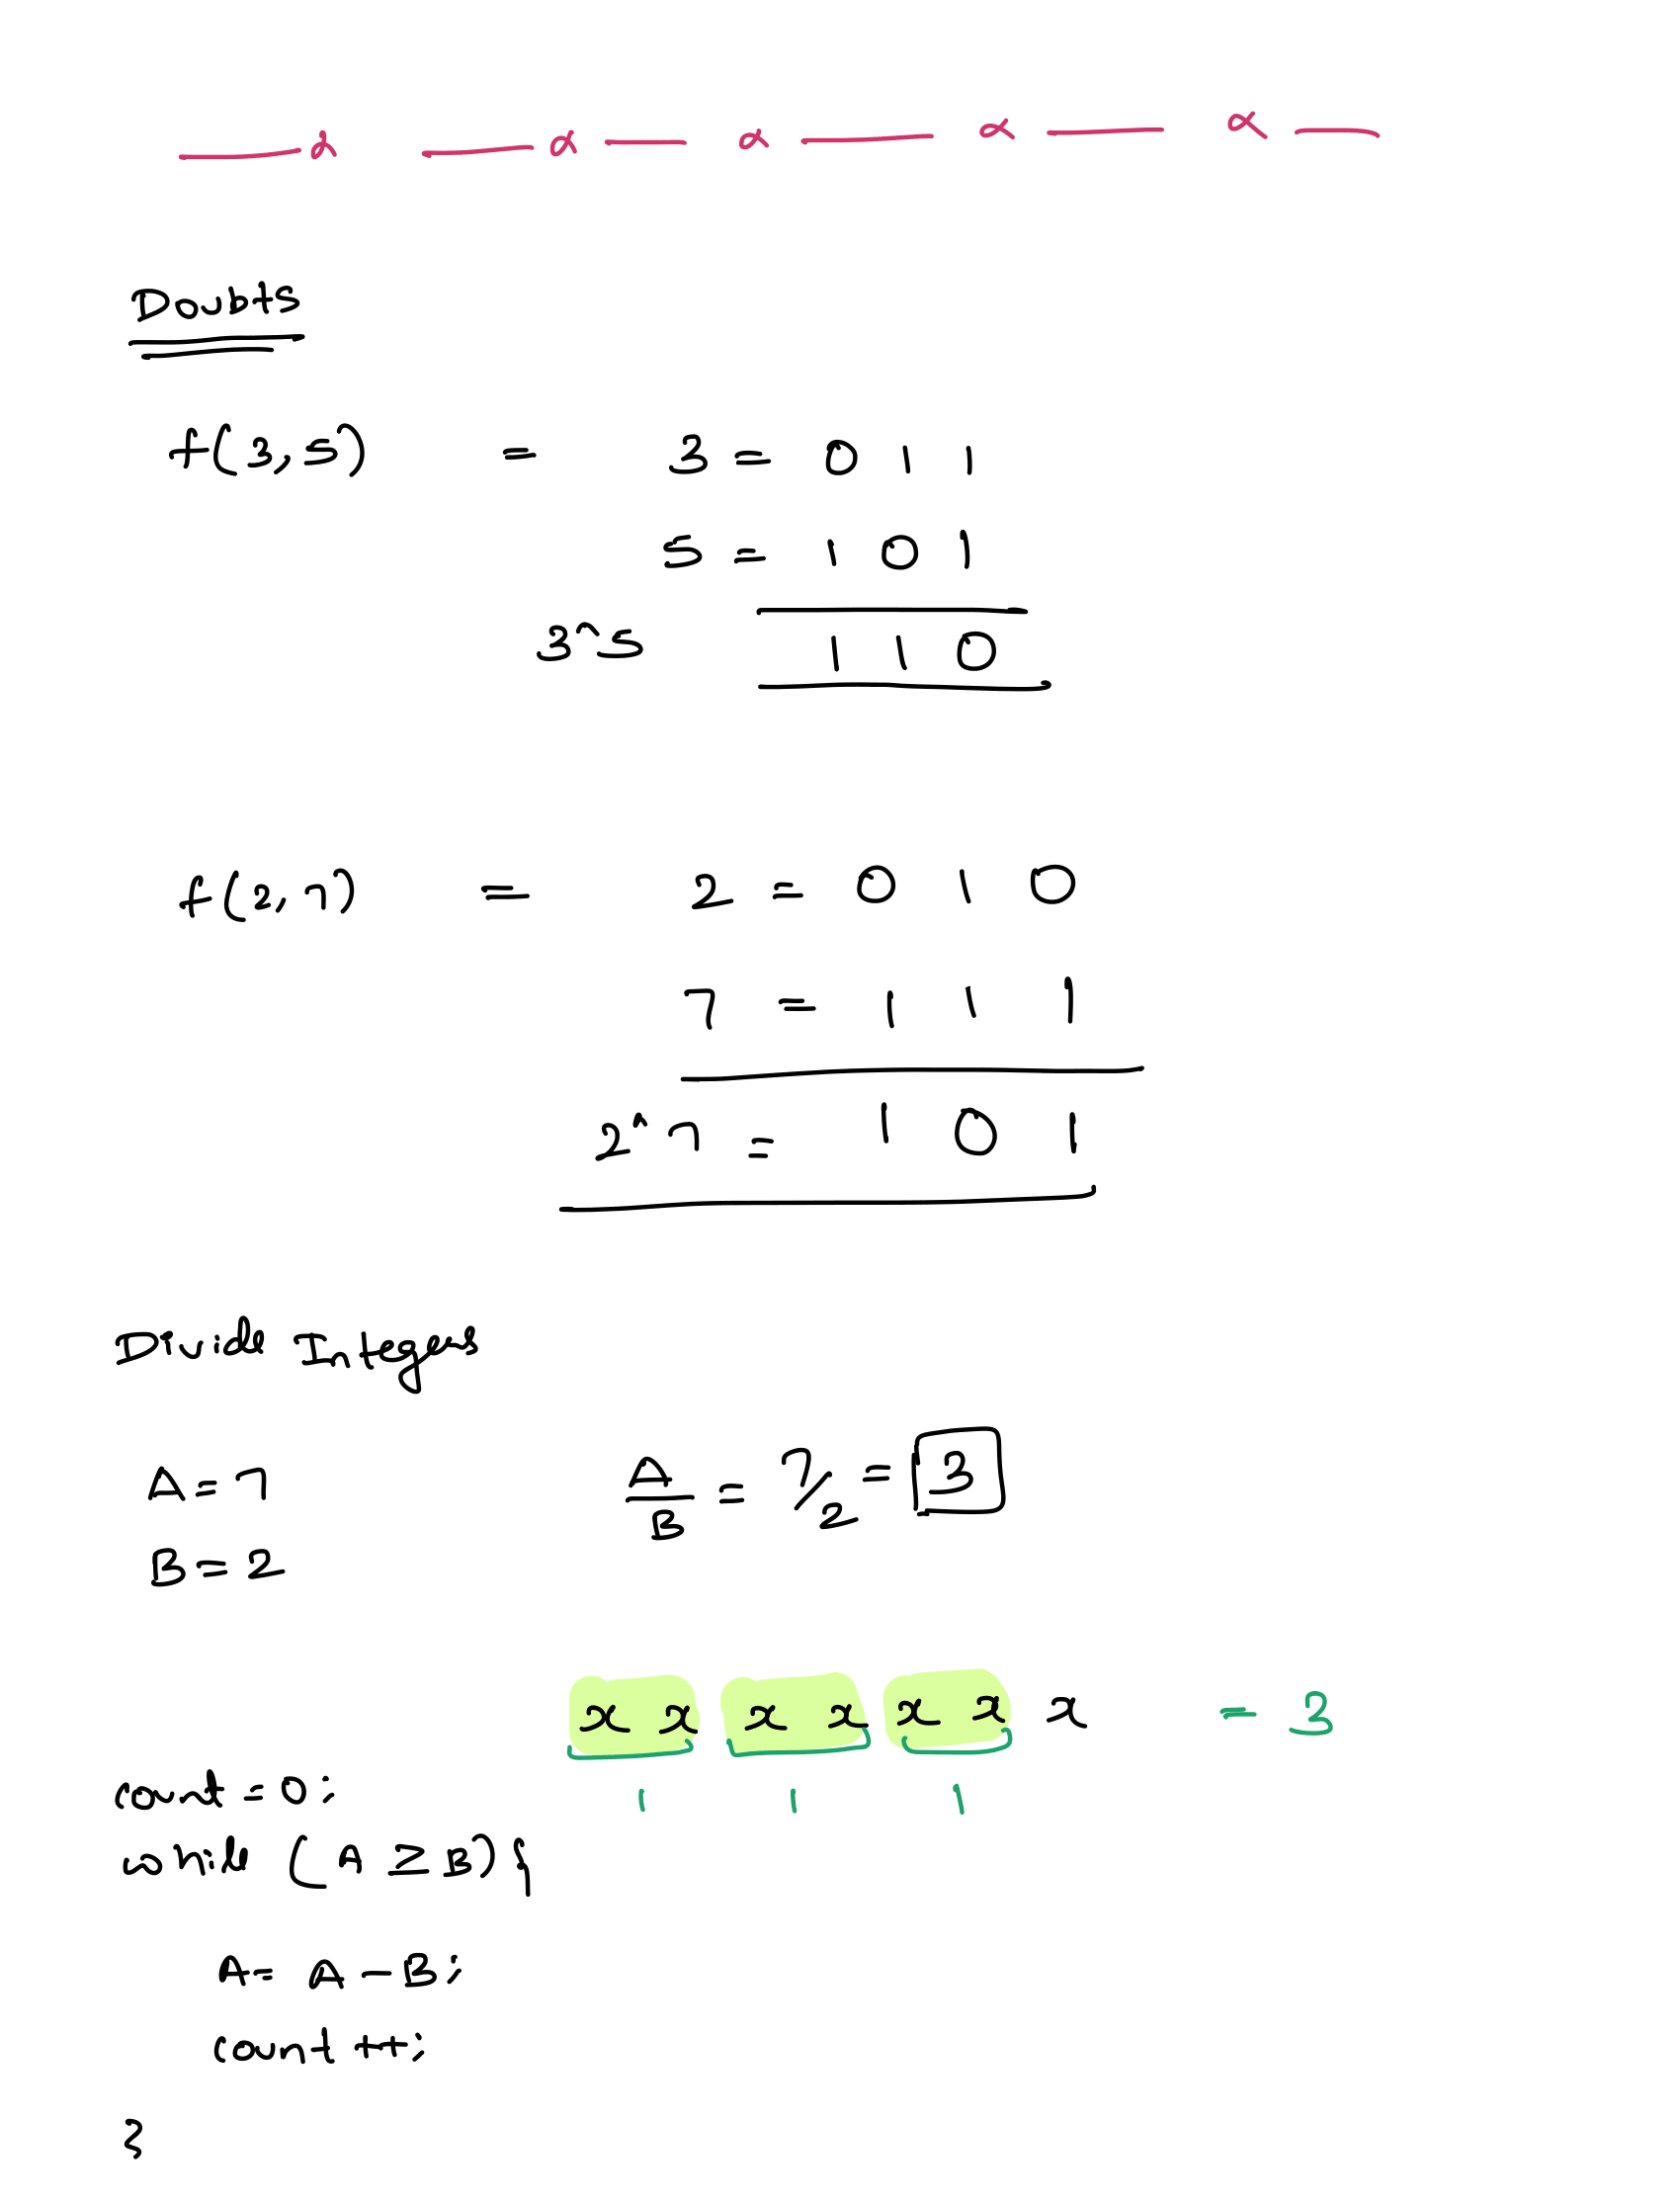 α α α α α
Doubts
f(3,5) = 3 = 0 1 1
5 = 1 0 1
3^5 1 1 0
f(2,7) = 2 = 0 1 0
7 = 1 1 1
2^7 = 1 0 1
Divide Integers
A = 7
A/B = 7/2 = 3
B = 2
x x x x x x x = 3
1 1 1
count = 0;
while (A ≥ B) {
A = A - B;
count ++;
}